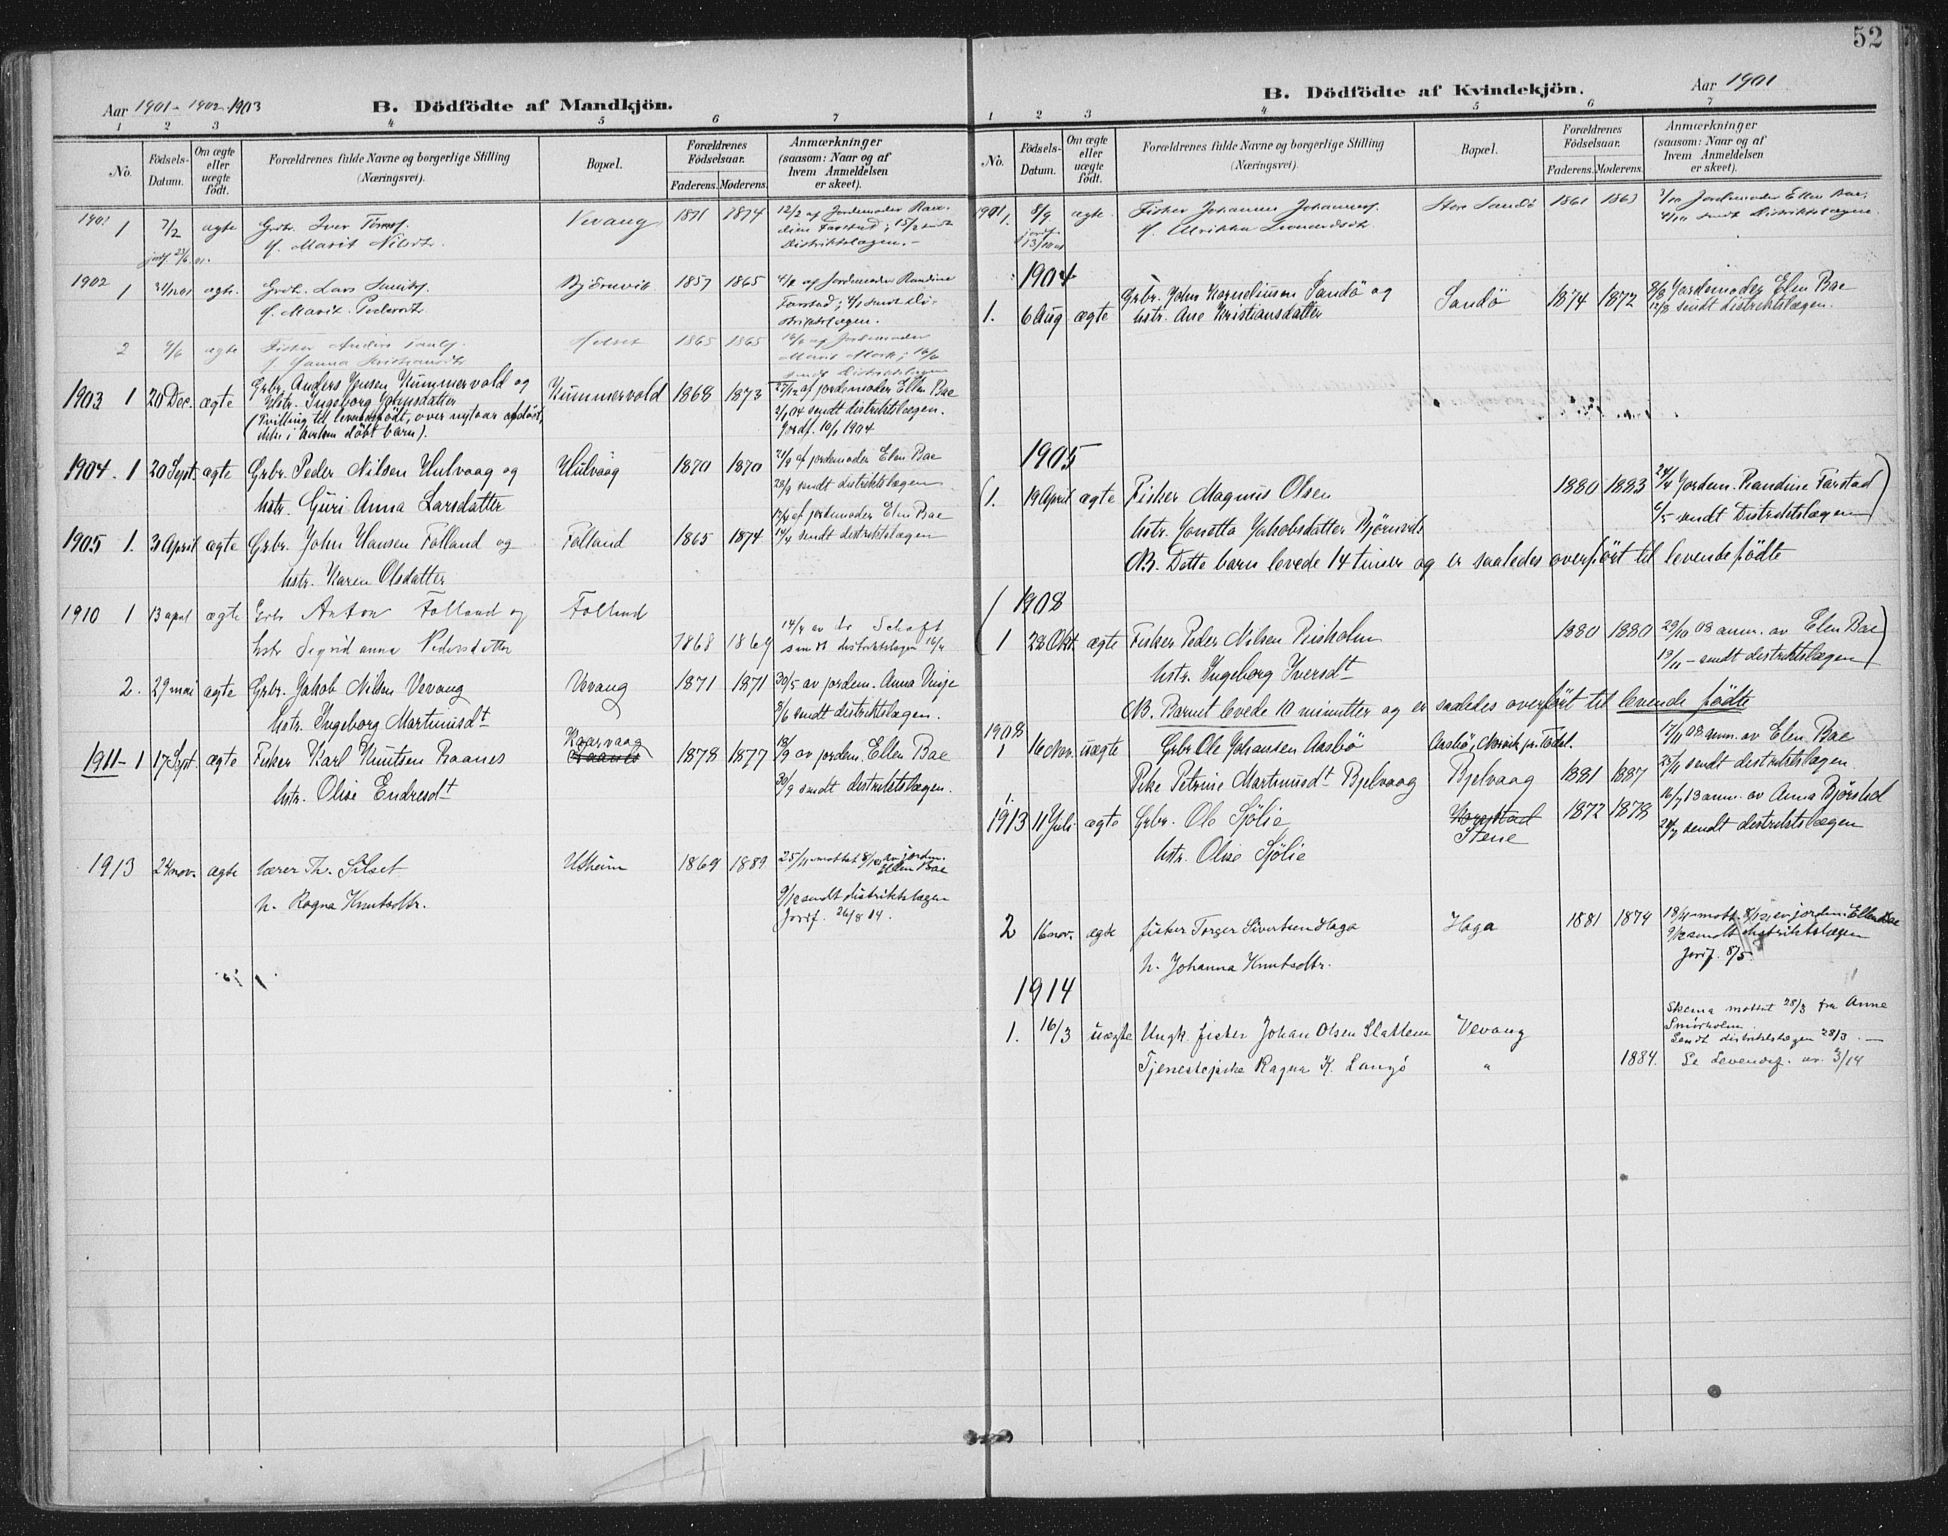 Aar 1901 - 1902 - 1903
B. Dödfödte af Mandkjön.
1 2 3 4 5 6 7
No.
Födsels-
Datum.
Om ægte
eller
uægte
födt.
Forældrenes fulde Navne og borgerlige Stilling
(Næringsvei).
Bopæl.
Forældrenes
Födselsaar.
Faderens. Moderens.
Anmærkninger
(saasom: Naar og af
hvem Anmeldelsen
er skeet).
1901 1 7/2 ægte Grdbr. Iver
Vevang 1871 1874 12/2 af Jordemoder Ran-
f. Marit Nilsdtr.
dine Farstad; 15/2 sendt
Distriktslægen.-
1902 1 ægte. Grdbr. Lars
Bjørnvik 1857 1865 af Jordemoder Randine
f. Marit Pedersdtr.
Farstad; sendt Di-
striktslægen.
2 9/6 ægte Fisker Anders
1865 1865 af Jordemoder
f. Hanna Kristiansdtr.
Marit Mork; 16/6
sendt Distriktslægen
1903 1 20 Dec. ægte Grbr. Anders Jensen Kummervold og
Kummervold 1868 1873 27/12 af jordemoder Ellen Bae
hstr. Ingeborg Johnsdatter
2/1 04 sendt distriktslægen.
(Tvilling til levendefödt, over nytaar
Jordf. 10/1 1904
döbt barn).
1904. 1 20 Sept. ægte Grbr. Peder Nilsen Hulvaag og
Hulvaag 1870 1870 21/9 af jordemoder Elen Bae
hstr. Guri Anna Larsdatter
28/9 sendt distriktslægen
1905 1. 3 April ægte Grbr. John Hansen Folland og
Folland 1865 1874 af jordemoder Elen Bae
hstr. Karen Olsdatter
14/4 sendt distriktslægen
1910 1 13 april ægte Grbr Anton Folland og
Folland
hstr Sigrid anna Pedersdatter
1868 1869 14/4 av dr Schaft
sendt distriktslægen 16/4
2. 29 mai ægte Grbr. Jakob Nilsen Vevang
Vevang 1871 1871 30/5 av jordem. Anna Vinje
hstr. Ingeborg Martinusdt
3/6 sendt distriktslægen.
1911 - 1 17 Sept. ægte Fisker Karl Knutsen Raanes
Kaarvaag
1878 1877 18/9 av jordem. Ellen Bae
hstr. Olise Endresdt
30/9 sendt distriktslægen.
1913 24 nov. ægte Lærer Th. Silset
Utheim 1869 1889 25/11 mottat 8/12 av jordm.
Ellen Bae
h. Ragna Knutsdtr.
9/12 sendt distriktslægen
Jordf. 26/8 14.
52
Aar 1901
B. Dödfödte af Kvindekjön.
1 2 3 4 5 6 7
No.
Födsels-
Datum.
Om ægte
eller
uægte
födt.
Forældrenes fulde Navne og borgerlige Stilling
(Næringsvei).
Bopæl.
Forældrenes
Födselsaar.
Faderens. Moderens.
Anmærkninger
(saasom: Naar og af
hvem Anmeldelsen
er skeet).
1901 1. 8/9 ægte. Fisker Johannes
Store Sandö 1861 1863 Jordemoder Ellen Bae,
f. Ulrikka Leonardsdtr.
sendt Distriktslægen.
1904
1. 6 Aug ægte Grbr. John Korneliusen Sandö og
Sandö 1874 1872 8/8 Jordemoder Elen Bae
hstr. Ane Kristiansdatter
12/8 sendt distriktslægen.
1905
(1. 19 April ægte Fisker Magnus Olsen
1880 1883 24/4 Jordem. Randine Farstad
hstr. Jonetta Jakobsdatter Bjørnvik
6/5 sendt Distriktslægen)
NB. Dette barn levede 14 timer og er saaledes overfört til levendefödte
1908
(1 28 Okt. ægte Fisker Peder Nilsen Pusholm
1880 1880 29/10 08 anm. av Elen Bae
hstr. Ingeborg Iversdt
19/11 - sendt distriktslægen)
NB. Barnet levede 10 minutter og er saaledes overfört til levende födte
1908
1 16 Nov. uægte Grbr. Ole Johansen Aasbö
Aasbö, Norvik pr. Todal. 17/11 08 anm. av Elen Bae
Pike Petrine Martinusdt Bjelvaag
Bjelvaag 1881 1887 23/11 sendt distriktslægen.
1.
1913 11 Juli ægte Grbr. Ole Sjölie
1872 1878 16/7 13 anm. av Anna Bjørstad
Stene
hstr. Olise Sjölie
sendt distriktslægen
2 16 nov. ægte fisker Torger Sivertsen Haga
Haga 1881 1874 18/11 mott. 8/12 av jordm. Ellen Bae
9/12 sendt distriktslægen
h. Johanna Knutsdtr.
Jordf. 8/5.
1914
1. 16/3 uægte Ungk. fisker Johan Olsen Slattem
Vevang
Skema mottat 28/3 fra Anne
Smörholm.
Sendt distriktslægen 28/3. -
Tjenestepike Ragna K. Langö
" 1884. Se Levendef. nr. 3/14